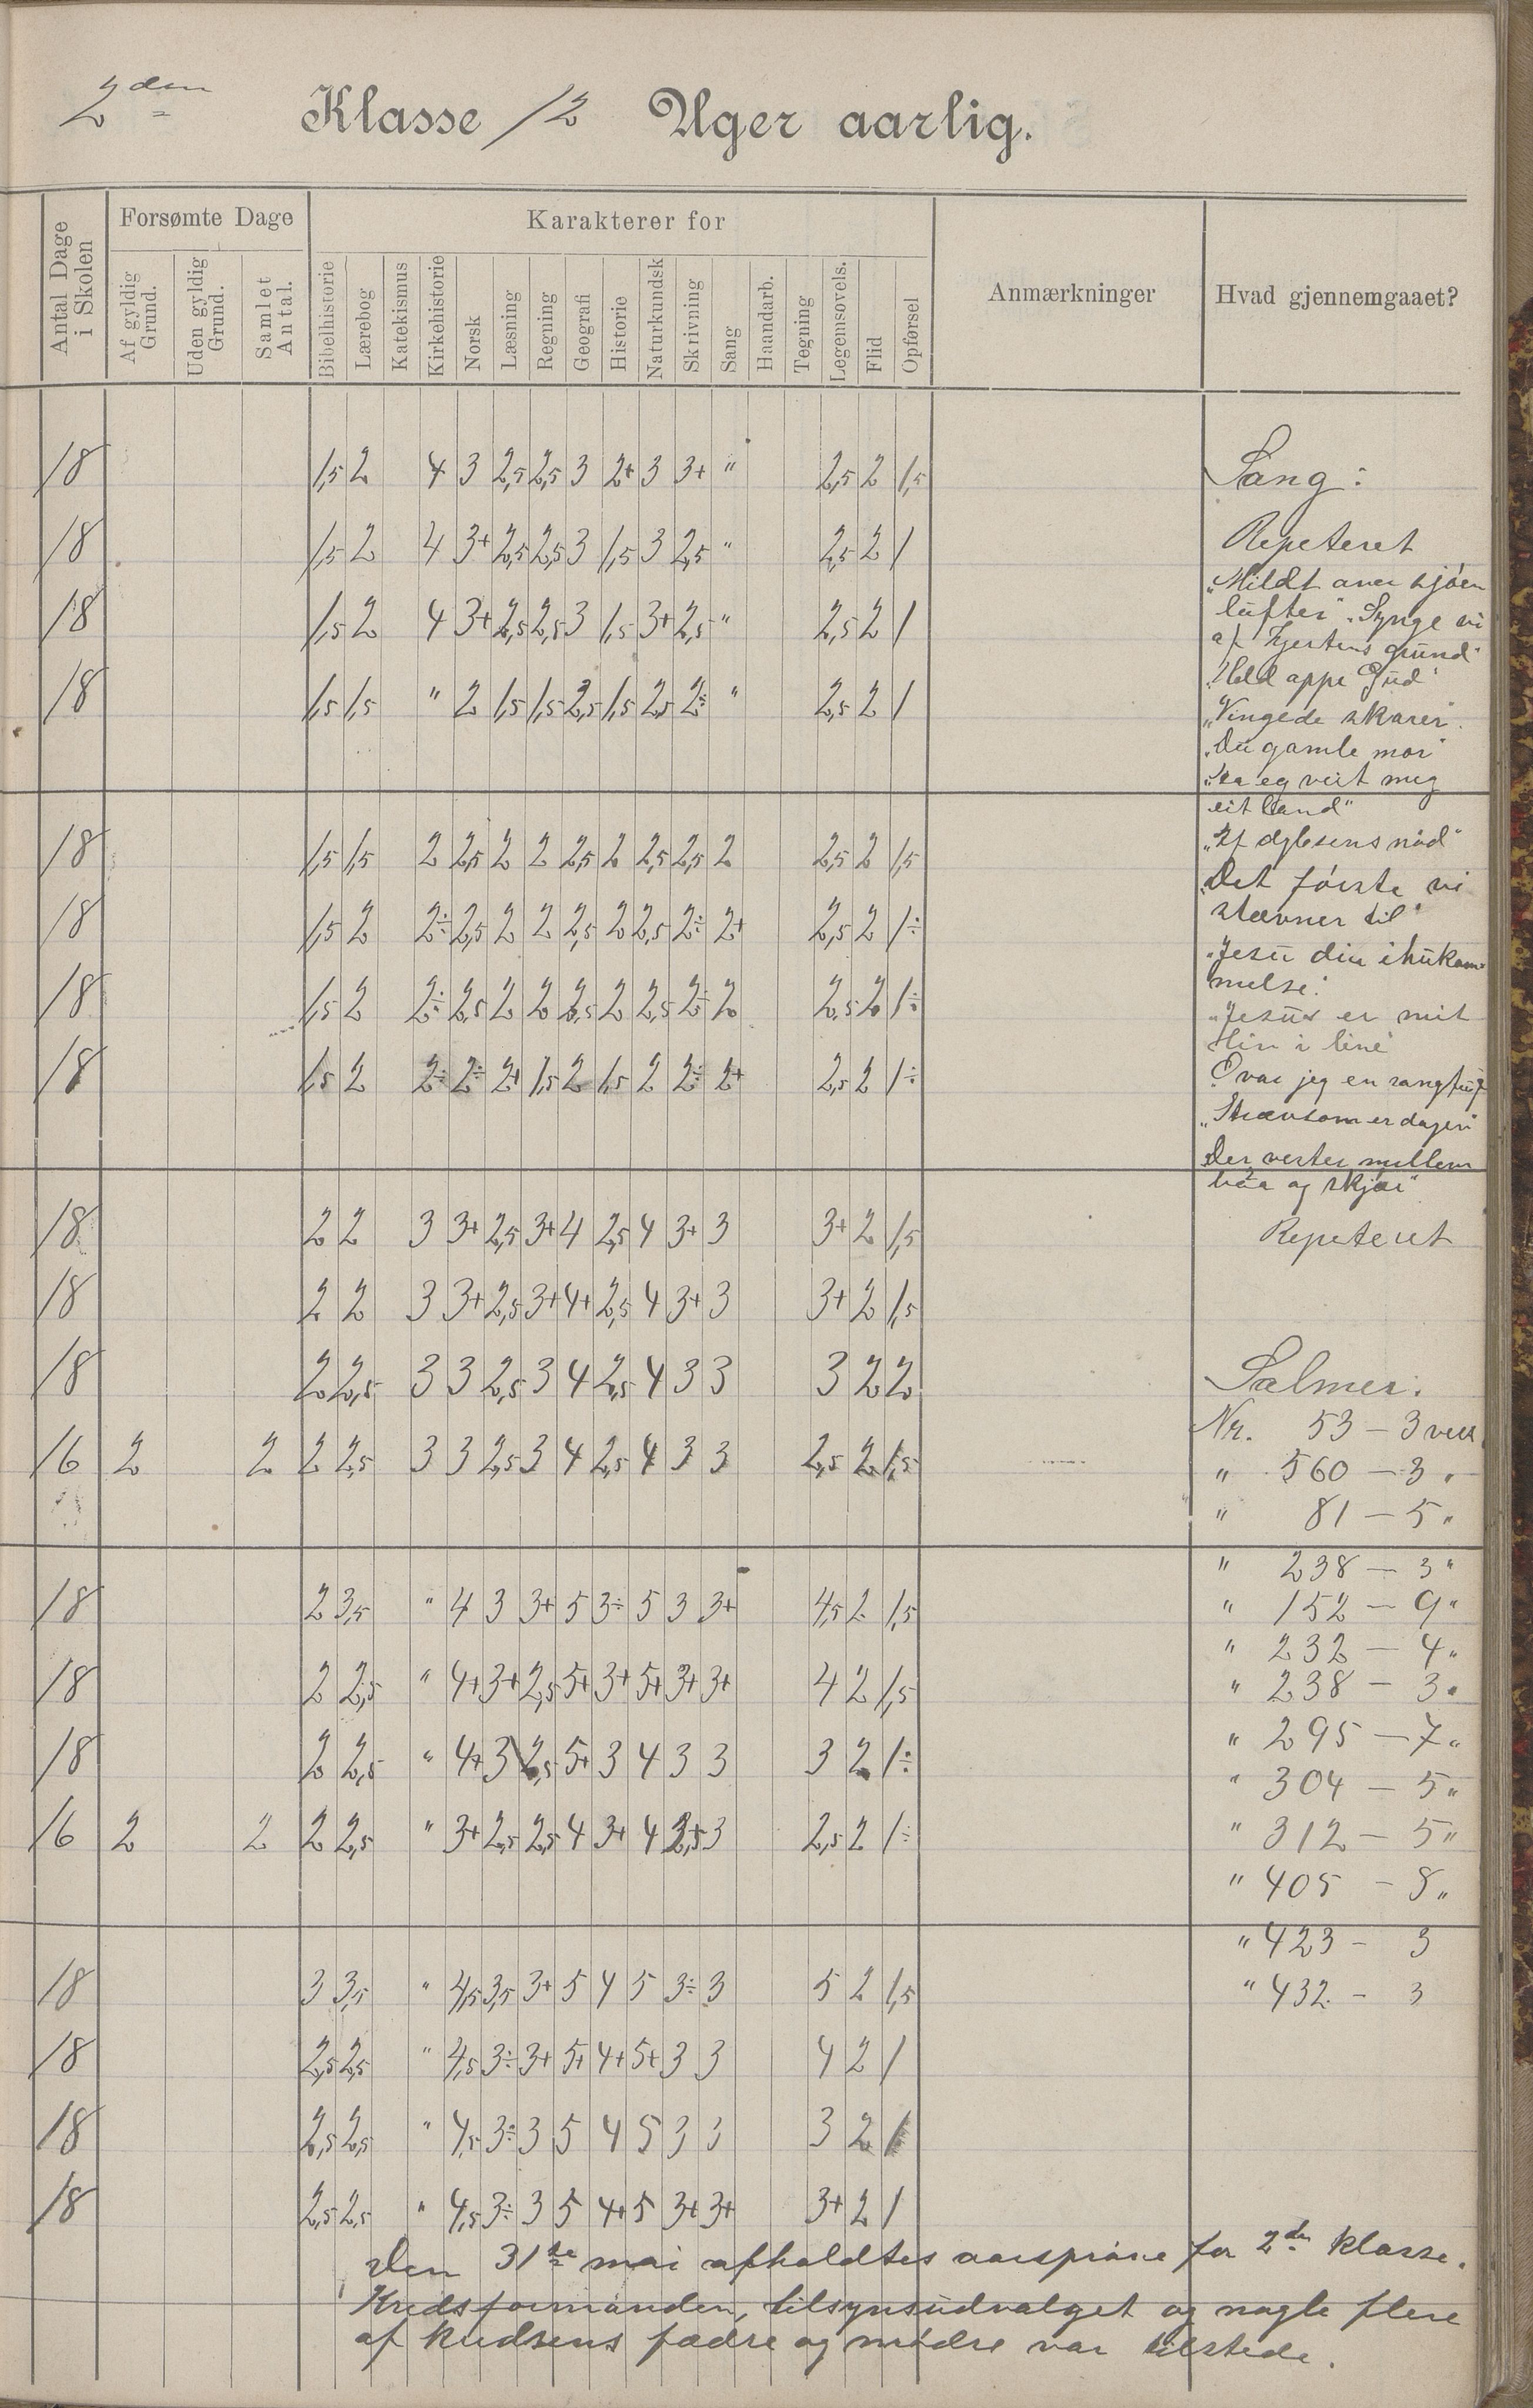 2den Klasse 12 Uger aarlig.
Antal Dage i Skolen
Forsømte Dage
Af gyldig Grund.
Uden gyldig Grund.
Samlet Antal.
Karakterer for
Bibelhistorie Lærebog Katekismus Kirkehistorie Norsk Læsning Regning Geografi Historie Naturkundsk Skrivning Sang Haandarb. Tegning Legemsovels. Flid Opførsel
Anmærkninger
Hvad gjennemgaaet?
18 1,5 2 4 3 2,5 2,5 3 2+ 3 3+ " 2,5 2 1,5
18 1,5 2 4 3+ 2,5 2,5 3 1,5 3 2,5 " 2,5 2 1
18 1,5 2 4 3+ 2,5 2,5 3 1,5 3+ 2,5 " 2,5 2 1
18 1,5 1,5 " 2 1,5 1,5 2,5 1,5 2,5 2÷ " 2,5 2 1
18 1,5 1,5 2 2,5 2 2 2,5 2 2,5 2,5 2 2,5 2 1,5
18 1,5 2 2÷ 2,5 2 2 2,5 2 2,5 2÷ 2+ 2,5 2 1÷
18 1,5 2 2÷ 2,5 2 2 2,5 2 2,5 2÷ 2 2,5 2 1÷
18 1,5 2 2÷ 2÷ 2+ 1,5 2 1,5 2 2÷ 2+ 2,5 2 1÷
18 2 2 3 3+ 2,5 3+ 4 2,5 4 3+ 3 3+ 2 1,5
18 2 2 3 3+ 2,5 3+ 4+ 2,5 4 3+ 3 3+ 2 1,5
18 2 2,5 3 3 2,5 3 4 2,5 4 3 3 3 2 2
16 2 2 2 2,5 3 3 2,5 3 4 2,5 4 3 3 2,5 2 1,5
18 2 3,5 " 4 3 3+ 5 3÷ 5 3 3+ 4,5 2 1,5
18 2 2,5 " 4+ 3+ 2,5 5+ 3+ 5+ 3+ 3+ 4 2 1,5
18 2 2,5 " 4+ 3 2,5 5+ 3 4 3 3 3 2 1÷
16 2 2 2 2,5 " 3+ 2,5 2,5 4 3+ 4 2,5 3 2,5 2 1÷
18 3 3,5 " 4,5 3,5 3+ 5 4 5 3÷ 3 5 2 1,5
18 2,5 2,5 " 4,5 3÷ 3+ 5+ 4+ 5+ 3 3 4 2 1
18 2,5 2,5 " 4,5 3÷ 3 5 4 5 3 3 3 2 1
18 2,5 2,5 " 4,5 3÷ 3 5 4+ 5 3+ 3+ 3+ 2 1
Sang:
Repeteret
"Mildt over sjøen
lufter" "Synge vi
af hjertens grund"
"Hold oppe Gud"
"Vingede skarer"
"Du gamle mor"
"Aa eg veit meg
eit land"
"Det første vi
stævner til"
"Jesu din ihukom-
melse"
"Jesus er mit
liv i live"
"O var jeg en sangfugl"
"Strævsom er dagen"
Der voxter mellem
baa og skjær"
Repeteret
Salmer:
Nr. 53 - 3 vers
" 560 - 3 "
" 81 - 5 "
" 238 - 3 "
" 152 - 9 "
" 232 - 4 "
" 238 - 3 "
" 295 - 7 "
" 304 - 5 "
" 312 - 5 "
" 405 - 8 "
" 423 - 3
" 432 - 3
Den 31te mai afholdtes aarsprøve for 2den klasse.
Kredsformanden, tilsynsudvalget og nogle flere
af kredsens fædre og mødre var tilstede.